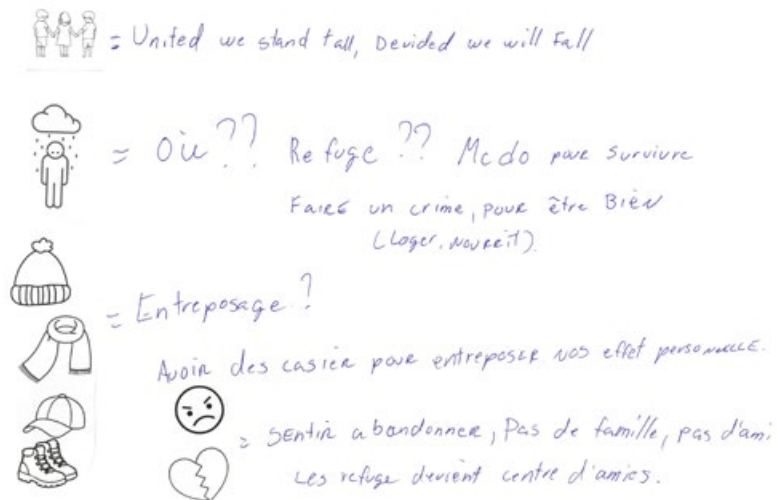 = United we stand tall, Devided we will Fall
= Où ?? Refuge ?? Mcdo pour survivre
FairE un crime, pour être BièN
(Loger, nourrit).
= Entreposage ?
Avoir des casièr pour entreposer nos effet personnelle.
= SEntir abandonner, Pas de famille, pas d'ami
Les refuge devient centre d'amies.